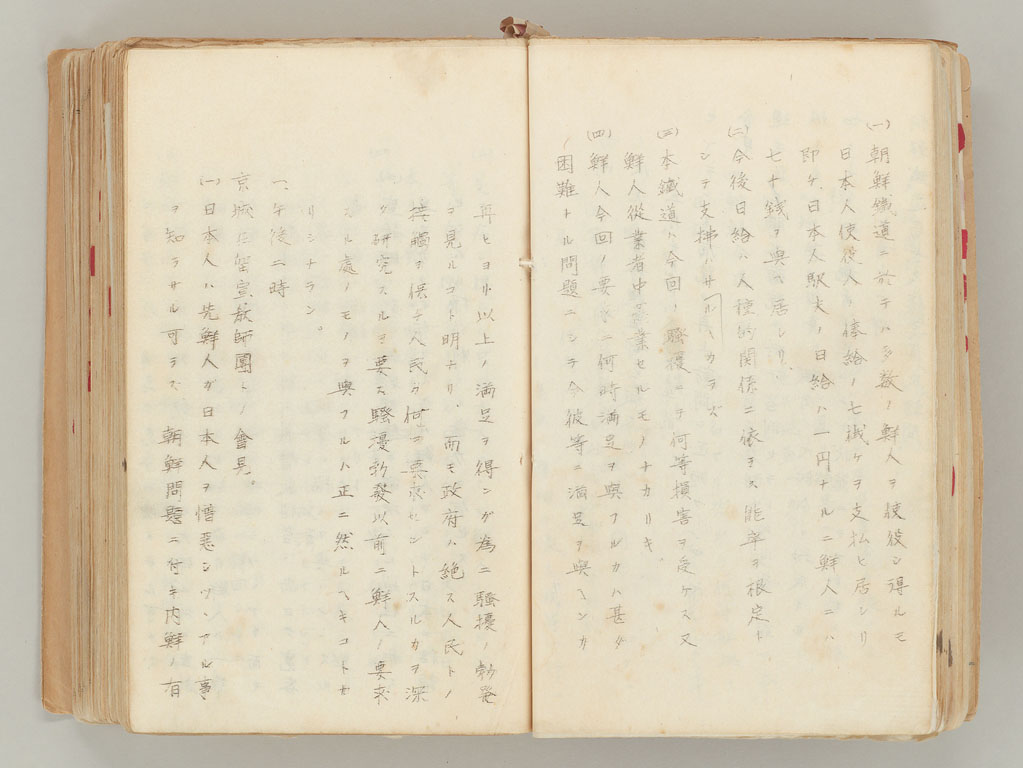 (一)朝鮮鐵道ニ於テハ多数ノ鮮人ヲ使役シ得ルモ
日本人使役人ノ俸給ノ七掛ケヲ支払ヒ居レリ
即チ、日本人駅夫ノ日給ハ一円ナルニ鮮人ニハ
七十錢ヲ與ヘ居レリ、
(二)今後日給ハ人種的関係ニ依ラス能率ヲ根定ト
シテ支拂ハサルヘカラス
(三)本鐵道ハ今回ノ騒擾ニテ何等損害ヲ受ケス又
鮮人從業者中罷業セルモノナカリキ。
(四)鮮人今回ノ要求ニ何時満足ヲ與フルカハ甚ダ
困難トル問題ニシテ今彼等ニ満足ヲ與ヘンカ
再ヒヨリ以上ノ満足ヲ得ンガ為ニ騒擾ノ勃発
ヲ見ルコト明ナリ、而モ政府ハ絶ヘス人民トノ
接觸ヲ保チ人民ガ何ヲ要求セントスルカヲ深
ク研究スルヲ要ス騒擾勃發以前ニ鮮人ノ要求
スル處ノモノヲ與フルハ正ニ然ルヘキコトナ
リシナラン。
一、午後二時
京城ニ宣教師團トノ會見。
(一)日本人ハ先鮮人ガ日本人ヲ憎悪シツヽアル事
ヲ知ラサル可ラズ 朝鮮問題ニ付キ内鮮ノ有